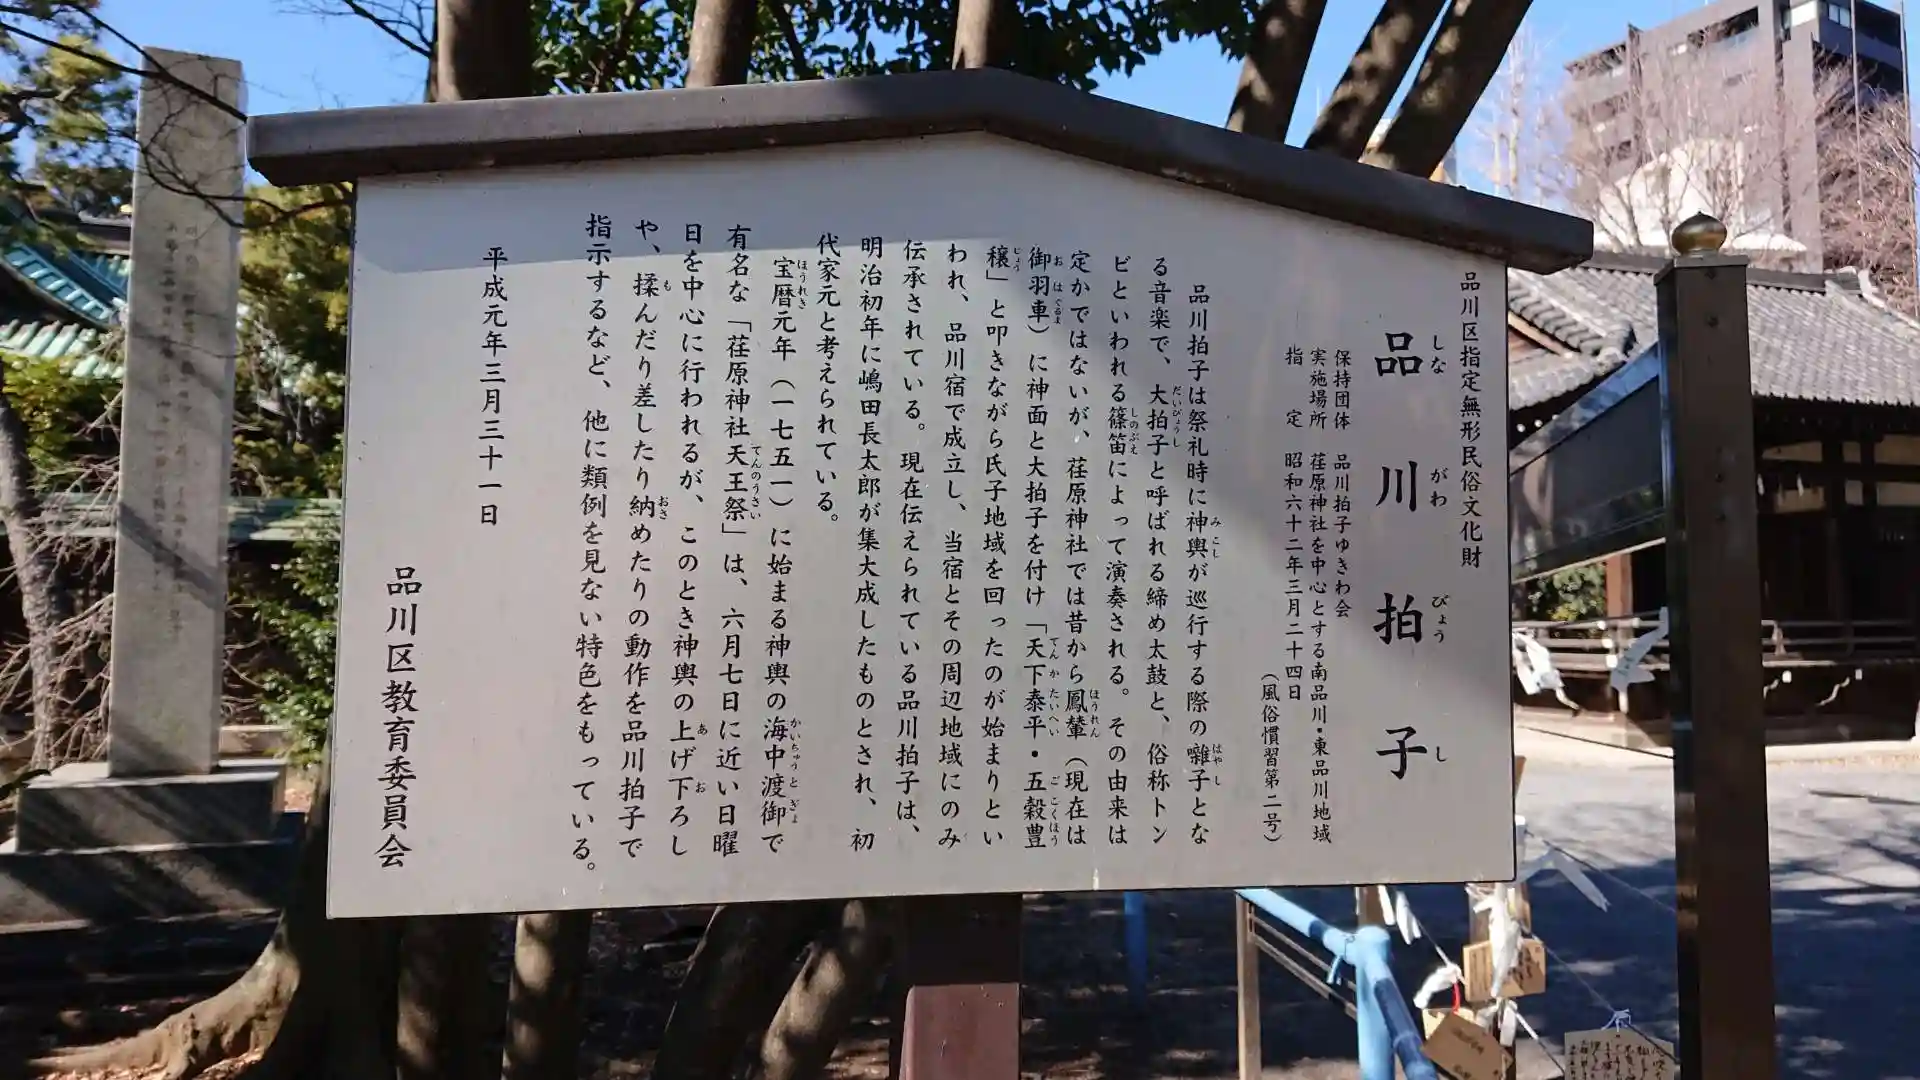 品川区指定無形民俗文化財
品川拍子
しながわびょうし
保持団体 品川拍子ゆきわ会
実施場所 荏原神社を中心とする南品川・東品川地域
指定 昭和六十二年三月二十四日
(風俗慣習第二号)
品川拍子は祭礼時に神輿が巡行する際の囃子とな
る音楽で、大拍子と呼ばれる締め太鼓と、俗称トン
ビといわれる篠笛によって演奏される。その由来は
定かではないが、荏原神社では昔から鳳輦(現在は
御羽車)に神面と大拍子を付け「天下泰平・五穀豊
穣」と叩きながら氏子地域を回ったのが始まりとい
われ、品川宿で成立し、当宿とその周辺地域にのみ
伝承されている。現在伝えられている品川拍子は、
明治初年に嶋田長太郎が集大成したものとされ、初
代家元と考えられている。
宝暦元年(一七五一)に始まる神輿の海中渡御で
有名な「荏原神社天王祭」は、六月七日に近い日曜
日を中心に行われるが、このとき神輿の上げ下ろし
や、揉んだり差したり納めたりの動作を品川拍子で
指示するなど、他に類例を見ない特色をもっている。
平成元年三月三十一日
品川区教育委員会